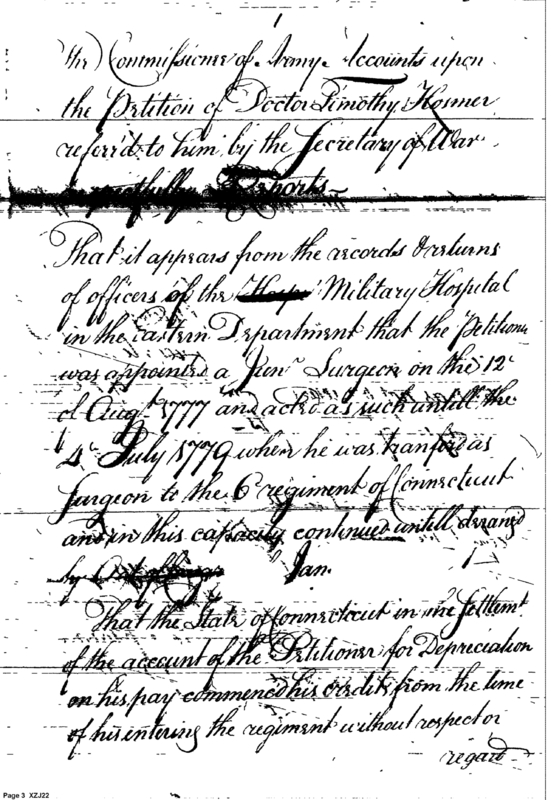 1
The Commissioner of Army Accounts upon
the Petition of Doctor Timothy Hosmer
referr'd to him by the Secretary of War
Reports
That it appears from the records & returns
of officers of the Military Hospital
in the Eastern Department that the Petitioner
was appointed a Junr Surgeon on the 12
of Augt 1777 and acted as such untill the
4 July 1779 when he was tranferd as
surgeon to the 6 regiment of Connecticut
and in this capacity continued untill deranged
by Jan.
That the State of Connecticut in the settlemt
of the account of the Petitioner for Depreciation
on his pay commenced his credits from the time
of his entering the regiment without respect or
regard
Page 3 XZJ22